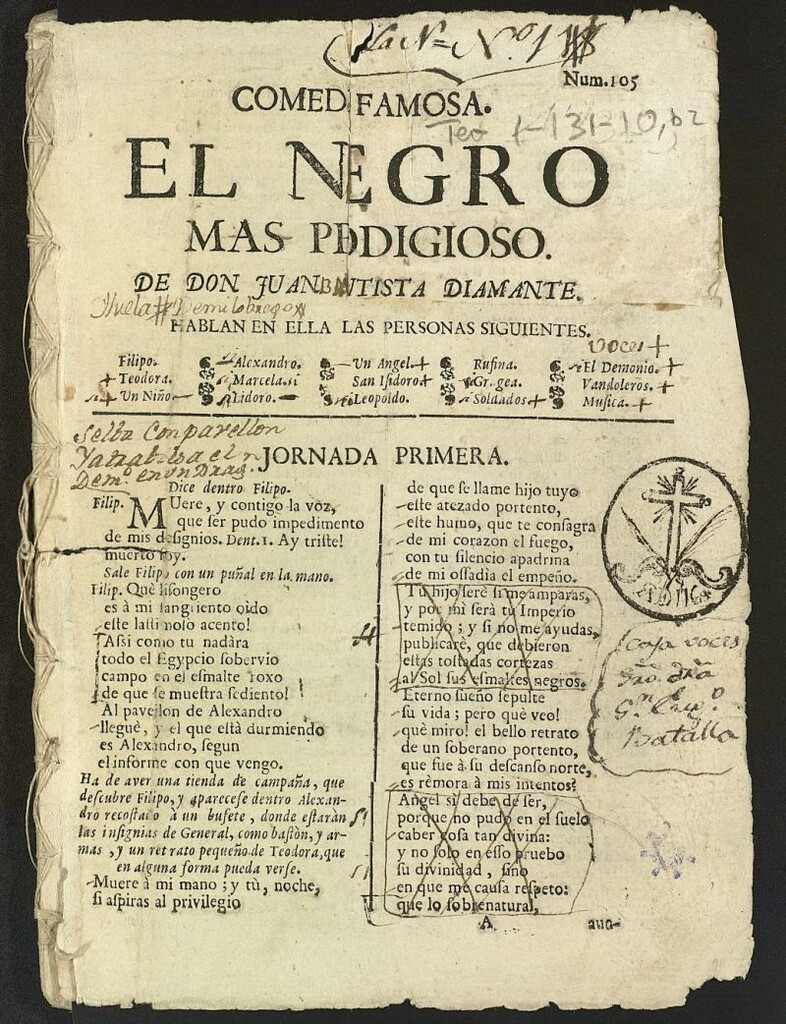 Num.105
COMED FAMOSA.
Teo 1-131-10, b2
EL NEGRO
MAS PDIGIOSO.
DE DON JUAN BAUTISTA DIAMANTE.
HABLAN EN ELLA LAS PERSONAS SIGUIENTES.
voces +
Filipo. Alexandro. Un Angel + Rufina. El Demonio. +
+ Teodora. Marcela. si San Isidoro + Gr. gea. Vandoleros. +
+ Un Niño Lidoro. Leopoldo. Soldados + Musica. +
Selba Con pavellon
JORNADA PRIMERA.
Dice dentro Filipo.
Filip. MUere, y contigo la voz,
que ser pudo impedimento
de mis designios. Dent. 1. Ay triste!
muerto soy.
Sale Filipo con un puñal en la mano.
Filip. Què lisongero
es à mi sangriento oìdo
este lastimoso acento!
Assi como tu nadàra
todo el Egypcio sobervio
campo en el esmalte roxo
de que se muestra sediento!
Al pavellon de Alexandro
lleguè, y el que està durmiendo
es Alexandro, segun
el informe con que vengo.
Ha de aver una tienda de campaña, que
descubre Filipo, y aparecese dentro Alexan-
dro recostado à un bufete, donde estaràn
las insignias de General, como bastòn, y ar-
mas, y un retrato pequeño de Teodora, que
en alguna forma pueda verse.
Muere à mi mano; y tù, noche,
si aspiras al privilegio
de que se llame hijo tuyo
este atezado portento,
este humo, que te consagra
de mi corazon el fuego,
con tu silencio apadrina
de mi ossadìa el empeño.
Tu hijo serè si me amparas,
y por mì serà tu Imperio
temido; y si no me ayudas,
publicarè, que debieron
estas tostadas cortezas
al Sol sus esmaltes negros.
Eterno sueño sepulte
su vida; pero què veo!
què miro! el bello retrato
de un soberano portento,
que fue à su descanso norte,
es rèmora à mis intentos?
Angel si debe de ser,
porque no pudo en el suelo
caber cosa tan divina:
y no solo en esso pruebo
su divinidad, sino
en que me causa respeto:
que lo sobrenatural,
A aun-
Caja voces
Batalla